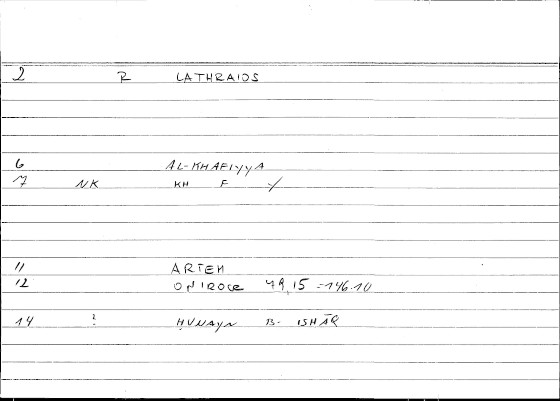 2 R LATHRAIOS
6 AL-KHAFIYYA
7 NK KH F Y
11 ARTEM
12 ONIROCR 79,15 = 146.10
14 ? ḤUNAYN B- ISḤĀQ